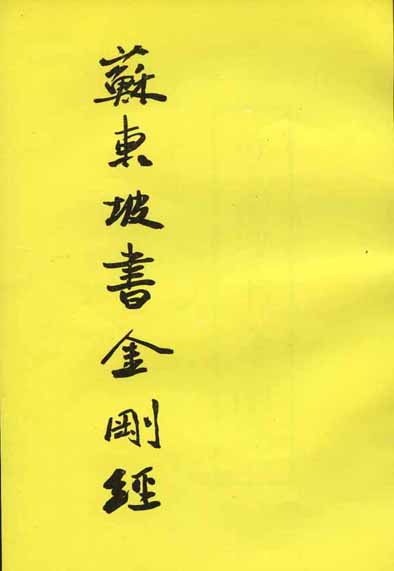 蘇東坡書金剛經